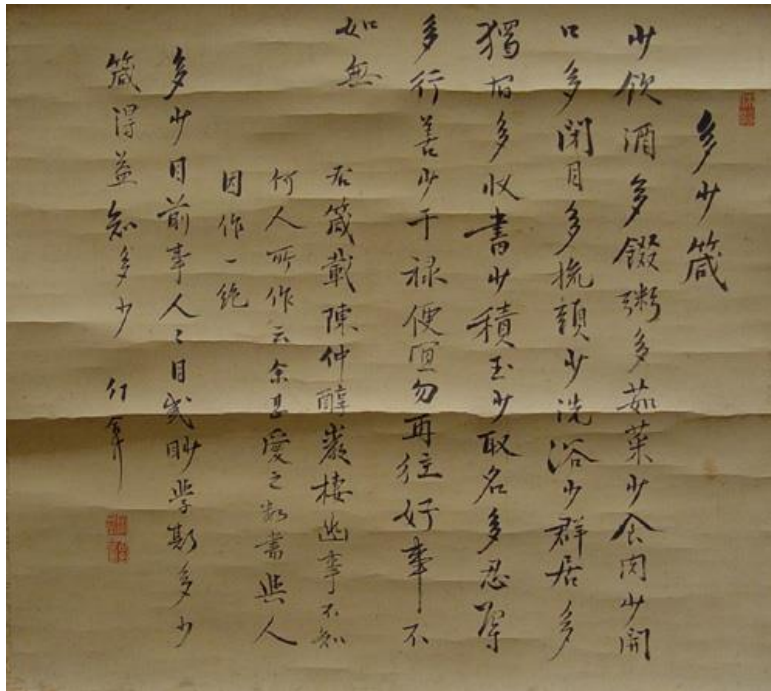 多少箴
少飲酒多餟粥多茹菜少食肉少開
口多閉目多梳頭少洗浴少群居多
獨宿多收書少積玉少取名多忍辱
多行善少干禄便宜勿再往好事不
如無
右箴載陳仲醇巖棲幽事不知
何人所作云余甚愛之数書與人
因作一絶
多少目前事人々目或眇学斯多少
箴得益知多少